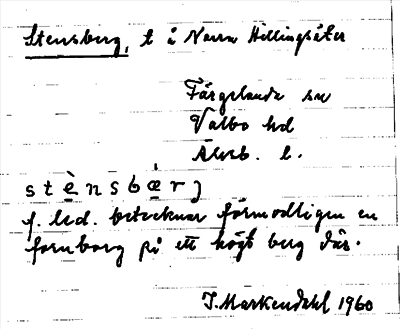 Stensberg, t å Norra Hillingsäter
Färgelanda sn
Valbo hd
Älvsb. l.
stènsbæ̀rj
f. led. betecknar förmodligen en
fornborg på ett högt berg där.
J. Markendahl 1960